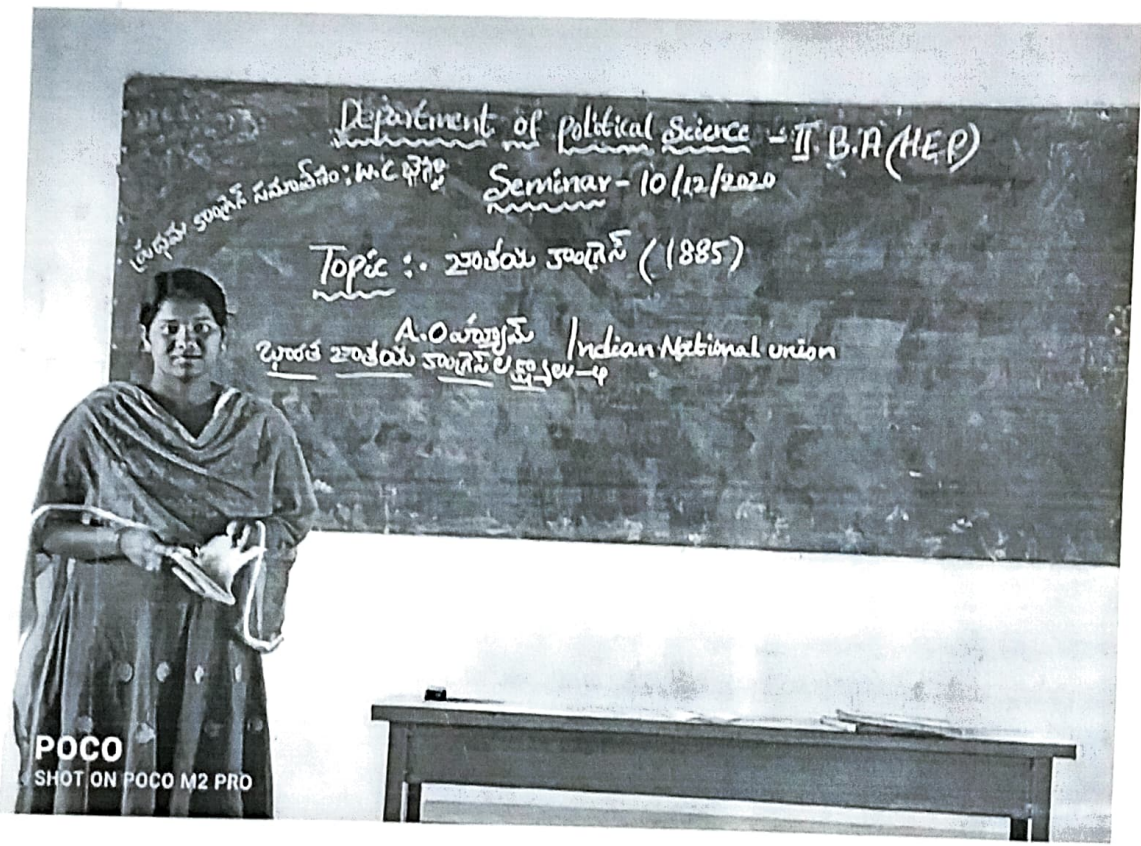 Department of Political Science - II. B.A (HEP)
ప్రథమ కాంగ్రెస్ సమావేశం : W.C
Seminar - 10/12/2020
Topic :- జాతీయ కాంగ్రెస్ (1885)
A.O హ్యూమ్ Indian National union
భారత జాతీయ కాంగ్రెస్ లక్ష్యాలు - 4
POCO
SHOT ON POCO M2 PRO